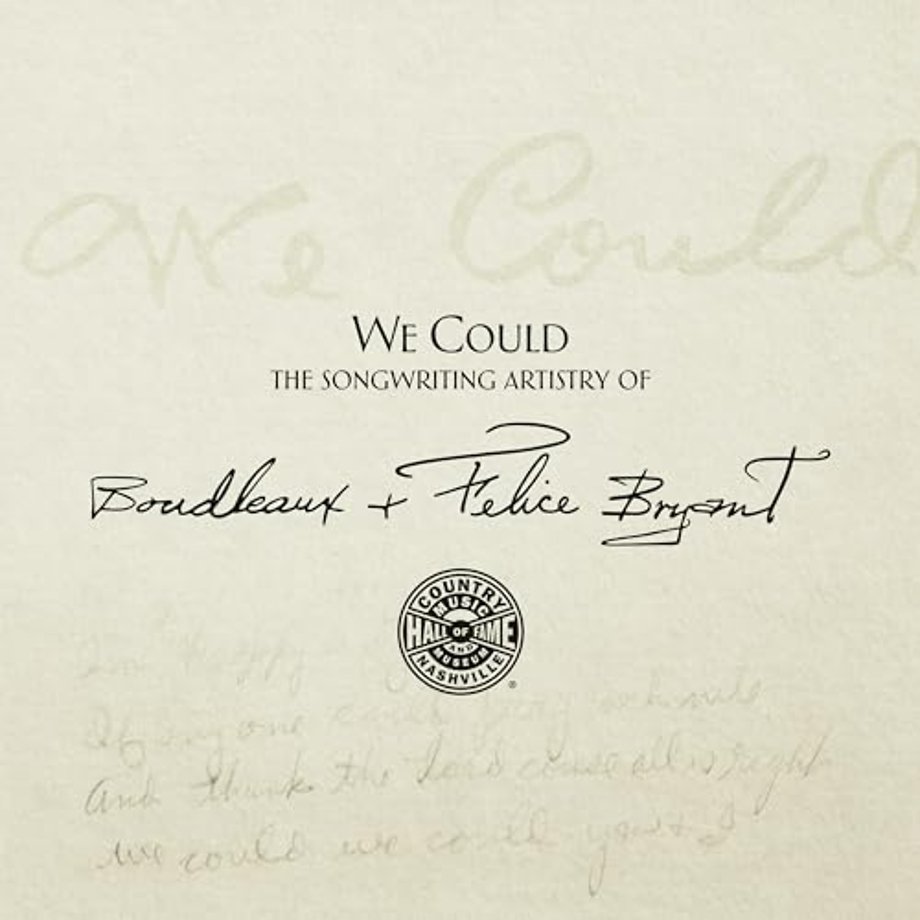 We Could
WE COULD
THE SONGWRITING ARTISTRY OF
Boudleaux + Felice Bryant
COUNTRY
MUSIC
HALL OF FAME
AND
MUSEUM
NASHVILLE
®
I'm happy
If anyone could
And thank the Lord cause all is right
we could we could you & I